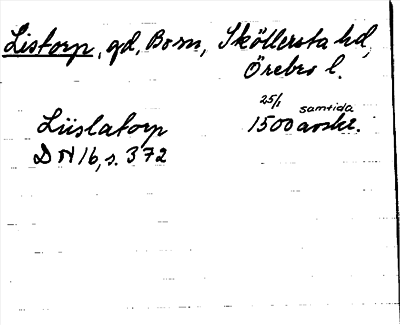 Listorp, gd, Bo sn, Sköllersta hd,
Örebro l.
25/1 samtida
Liislatorp 1500 avskr.
DN 16, s. 372